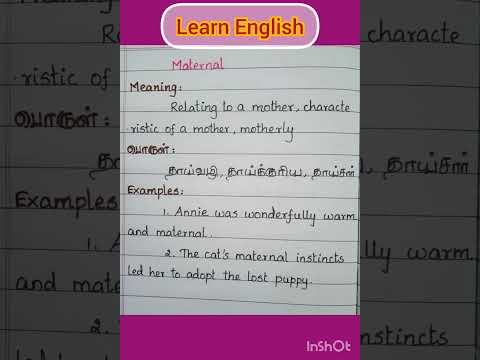 Learn English
Maternal
Meaning:
Relating to a mother, characte
ristic of a mother, motherly
பொருள்:
தாய்வழி, தாய்க்குரிய, தாய்சார்
Examples:
1. Annie was wonderfully warm
and maternal.
2. The cat's maternal instincts
led her to adopt the lost puppy.
InShOt